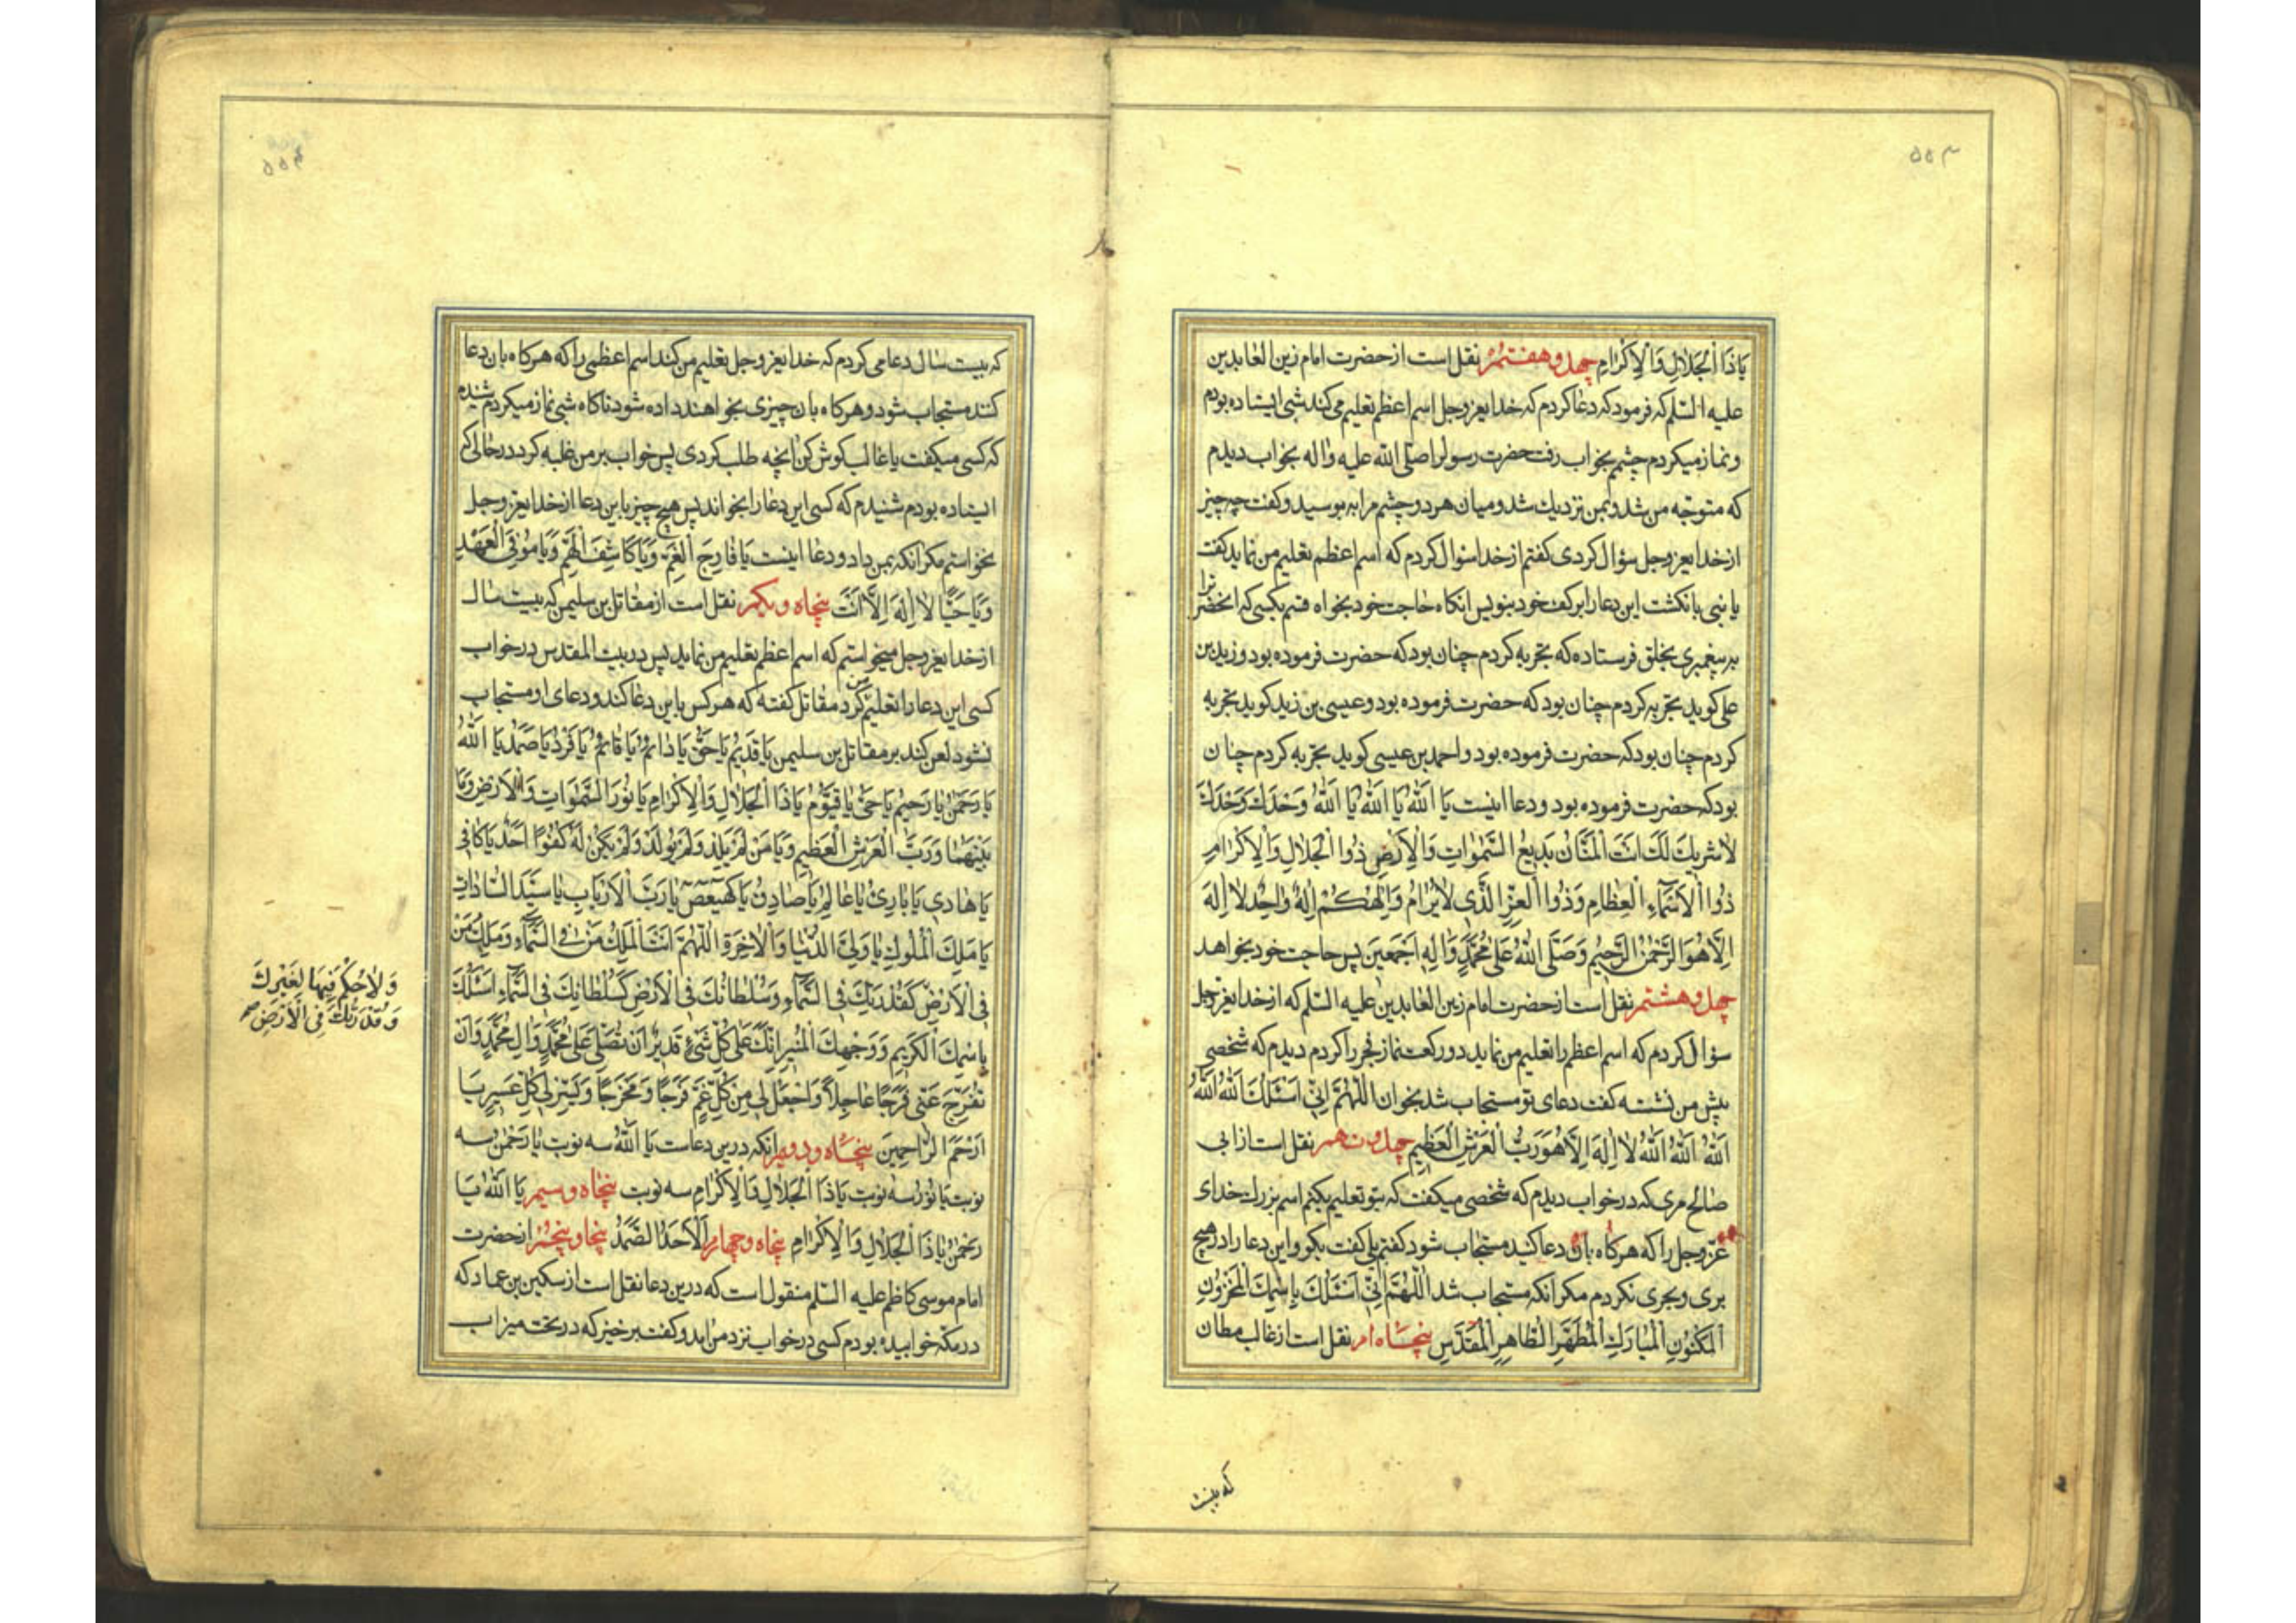 ۵۵۳
يَا ذَا الْجَلَالِ وَالْاِكْرَامِ چهل و هفتم نقل است از حضرت امام زین العابدین
علیه السلم که فرمود که دعا کردم که خدایعزوجل اسم اعظم تعلیم می کند شبی ایستاده بودم
و نماز میکردم چشم بخواب رفت حضرت رسول را صلی الله علیه واله بخواب دیدم
که متوجه من شد و بمن نزدیك شد و میان هر دو چشم مرا به بوسید و کفت چه چیز
از خدایعزوجل سؤال کردی کفتم از خدا سؤال کردم که اسم اعظم تعلیم من نماید کفت
یا بنی بانکشت این دعا را بر کف خود بنویس انکاه حاجت خود بخواه قسم بکسی که انحضرت را
به پیغمبری بخلق فرستاده که تجربه کردم چنان بود که حضرت فرموده بود و زید بن
علی کوید تجربه کردم چنان بود که حضرت فرموده بود و عیسی بن زید کوید تجربه
کردم چنان بود که حضرت فرموده بود و احمد بن عیسی کوید تجربه کردم چنان
بود که حضرت فرموده بود و دعا اینست يَا اَللّٰهُ يَا اَللّٰهُ يَا اَللّٰهُ وَحْدَكَ وَحْدَكَ
لَا شَرِيكَ لَكَ اَنْتَ الْمَنَّانُ بَدِيعُ السَّمٰوَاتِ وَالْاَرْضِ ذُوا الْجَلَالِ وَالْاِكْرَامِ
ذُوا الْاَسْمَاءِ الْعِظَامِ وَذُوا الْعِزِّ الَّذِي لَا يُرَامُ وَاِلٰهُكُمْ اِلٰهٌ وَاحِدٌ لَا اِلٰهَ
اِلَّا هُوَ الرَّحْمٰنُ الرَّحِيمُ وَصَلَّى اللّٰهُ عَلٰى مُحَمَّدٍ وَاٰلِهِ اَجْمَعِينَ پس حاجت خود بخواهد
چهل و هشتم نقل است از حضرت امام زین العابدین علیه السلم که از خدایعزوجل
سؤال کردم که اسم اعظم را تعلیم من نماید دو رکعت نماز فجر را کردم دیدم که شخصی
پیش من نشسته کفت دعای تو مستجاب شد بخوان اَللّٰهُمَّ اِنِّي اَسْئَلُكَ اَللّٰهُ اَللّٰهُ
اَللّٰهُ اَللّٰهُ اَللّٰهُ لَا اِلٰهَ اِلَّا هُوَ رَبُّ الْعَرْشِ الْعَظِيمِ چهل و نهم نقل است از ابی
صالح مری که در خواب دیدم که شخصی میکفت که بتو تعلیم بکنم اسم بزرك خدای
عزوجل را که هر کاه بان دعا کنید مستجاب شود کفتم بلی کفت بکو و این دعا را در هیچ
بری و بحری نکردم مکر انکه مستجاب شد اَللّٰهُمَّ اِنِّي اَسْئَلُكَ بِاسْمِكَ الْمَخْزُونِ
الْمَكْنُونِ الْمُبَارَكِ الْمُطَهَّرِ الطَّاهِرِ الْمُقَدَّسِ پنجاه ام نقل است از غالب مطان
که بیست
۵۵۴
که بیست سال دعا می کردم که خدایعزوجل تعلیم من کند اسم اعظمی را که هر کاه بان دعا
کنند مستجاب شود و هر کاه بان چیزی بخواهند داده شود ناکاه شبی نماز میکردم شنیدم
که کسی میکفت یا غالب کوش کن انچه طلب کردی پس خواب بر من غلبه کرد در حالی که
ایستاده بودم شنیدم که کسی این دعا را بخواند پس هیچ چیز باین دعا از خدایعزوجل
نخواستم مکر انکه بمن داد و دعا اینست يَا فَارِجَ الْغَمِّ وَيَا كَاشِفَ الْهَمِّ وَيَا مُوفِيَ الْعَهْدِ
وَيَا حَيًّا لَا اِلٰهَ اِلَّا اَنْتَ پنجاه و یکم نقل است از مقاتل بن سلیمن که بیست سال
از خدایعزوجل میخواستم که اسم اعظم تعلیم من نماید پس در بیت المقدس در خواب
کسی این دعا را تعلیم من کرد مقاتل کفته که هر کس باین دعا کند و دعای او مستجاب
نشود لعن کند بر مقاتل بن سلیمن يَا قَدِيمُ يَا حَقُّ يَا دَائِمُ يَا قَائِمُ يَا فَرْدُ يَا صَمَدُ يَا اَللّٰهُ
يَا رَحْمٰنُ يَا رَحِيمُ يَا حَيُّ يَا قَيُّومُ يَا ذَا الْجَلَالِ وَالْاِكْرَامِ يَا نُورَ السَّمٰوَاتِ وَالْاَرْضِ وَمَا
بَيْنَهُمَا وَرَبَّ الْعَرْشِ الْعَظِيمِ وَيَا مَنْ لَمْ يَلِدْ وَلَمْ يُولَدْ وَلَمْ يَكُنْ لَهُ كُفُوًا اَحَدٌ يَا كَافِي
يَا هَادِي يَا بَارِئُ يَا عَالِمُ يَا صَادِقُ يَا كهيعص يَا رَبَّ الْاَرْبَابِ يَا سَيِّدَ السَّادَاتِ
يَا مَلِكَ الْمُلُوكِ يَا وَلِيَّ الدُّنْيَا وَالْاٰخِرَةِ اَللّٰهُمَّ اَنْتَ الْمَلِكُ مَنْ فِي السَّمَاءِ وَمَلِكُ مَنْ
فِي الْاَرْضِ كَقُدْرَتِكَ فِي السَّمَاءِ وَسُلْطَانُكَ فِي الْاَرْضِ كَسُلْطَانِكَ فِي السَّمَاءِ اَسْئَلُكَ
بِاسْمِكَ الْكَرِيمِ وَوَجْهِكَ الْمُنِيرِ اِنَّكَ عَلٰى كُلِّ شَيْءٍ قَدِيرٌ اَنْ تُصَلِّيَ عَلٰى مُحَمَّدٍ وَاٰلِ مُحَمَّدٍ وَاَنْ
تُفَرِّجَ عَنِّي فَرَجًا عَاجِلًا وَاجْعَلْ لِي مِنْ كُلِّ غَمٍّ فَرَجًا وَمَخْرَجًا وَيَسِّرْ لِي كُلَّ عَسِيرٍ يَا
اَرْحَمَ الرَّاحِمِينَ پنجاه و دویم انکه درین دعاست يَا اَللّٰهُ سه نوبت يَا رَحْمٰنُ سه
نوبت يَا نُورُ سه نوبت يَا ذَا الْجَلَالِ وَالْاِكْرَامِ سه نوبت پنجاه و سیم يَا اَللّٰهُ يَا
رَحْمٰنُ يَا ذَا الْجَلَالِ وَالْاِكْرَامِ پنجاه و چهارم اَلْاَحَدُ الصَّمَدُ پنجا و پنجم از حضرت
امام موسی کاظم علیه السلم منقول است که درین دعا نقل است از سکین بن عماد که
در مکه خوابیده بودم کسی در خواب نزد من امد و کفت برخیز که در تحت میزاب
وَلَا حُكْمَ فِيهَا لِغَيْرِكَ
وَقُدْرَتُكَ فِي الْاَرْضِ صح